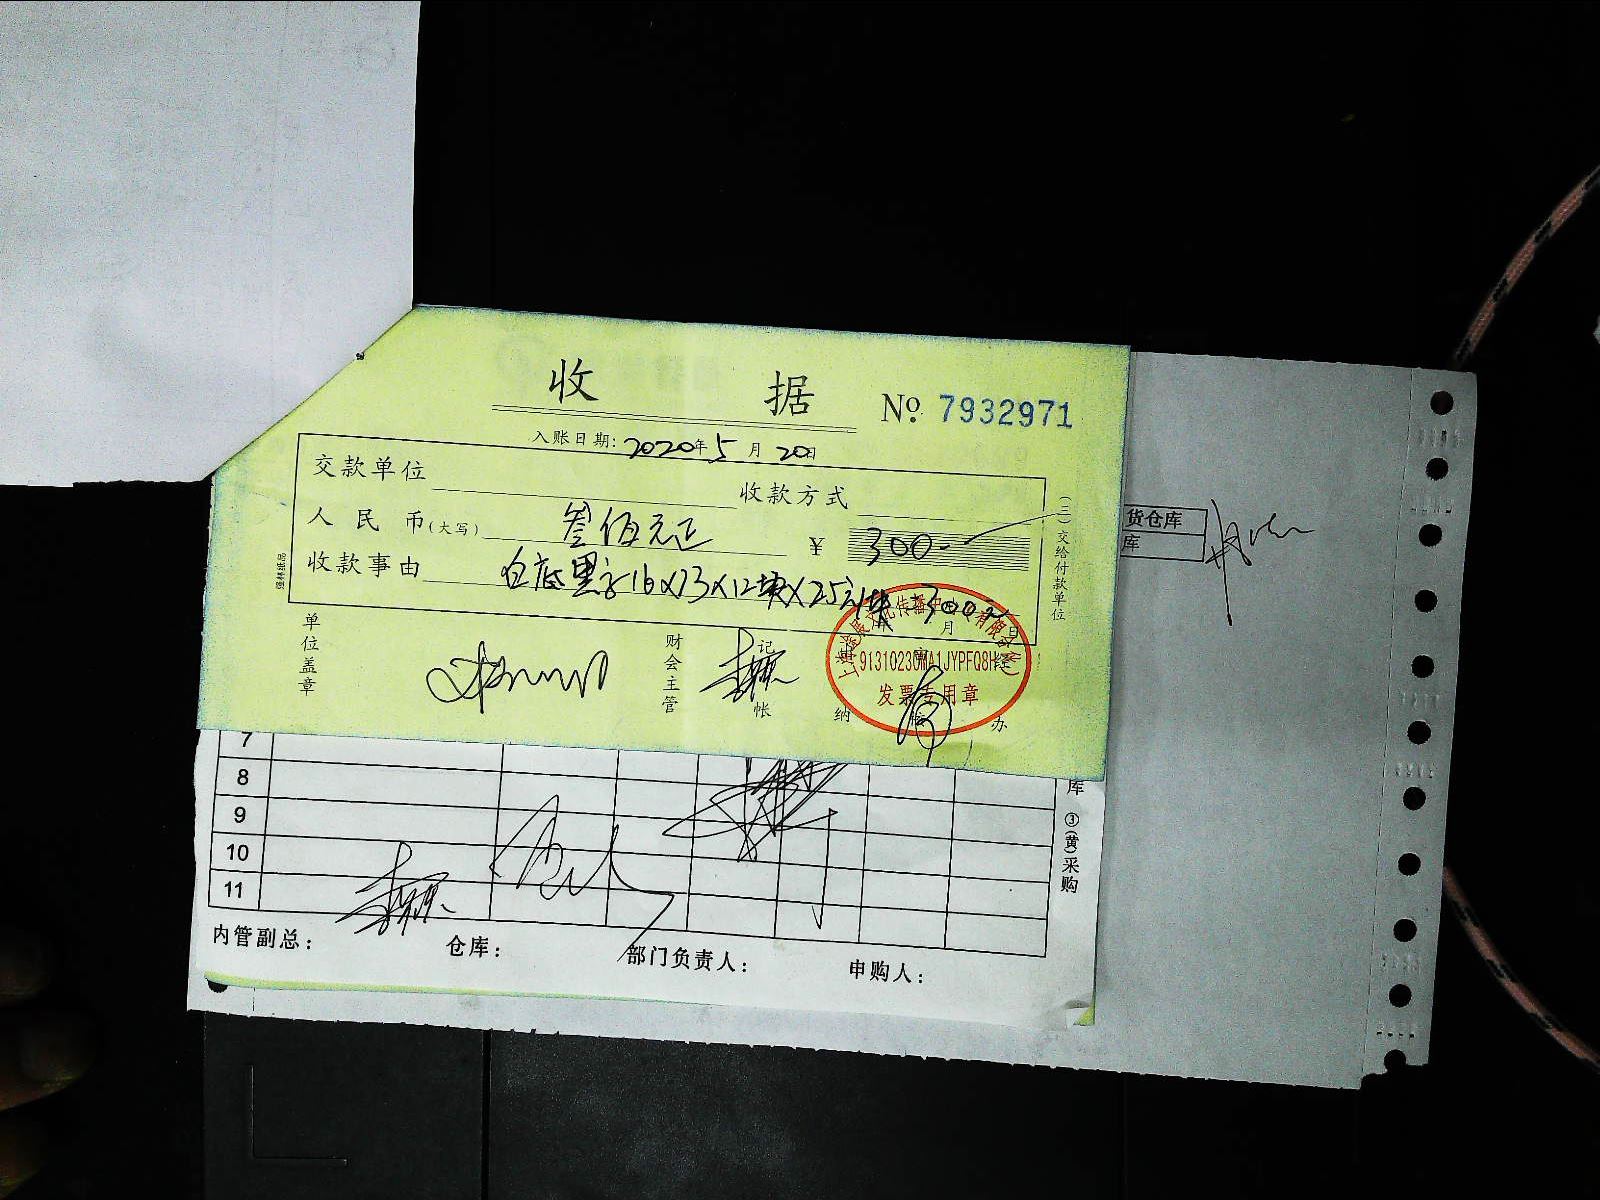 收 据 No. 7932971
入账日期: 2020年 5 月 20日
交款单位 收款方式
人民币(大写) 叁佰元正 ¥ 300-
收款事由 白底黑字16×13×12块×25元/块 300元
月 日
(三)交给付款单位
强林纸品
单位盖章
财会主管
记帐
纳
办
91310230MA1JYPFQ8H
发票专用章
货仓库
库
7
8
9
10
11
库 ③(黄)采购
内管副总: 仓库: 部门负责人: 申购人: